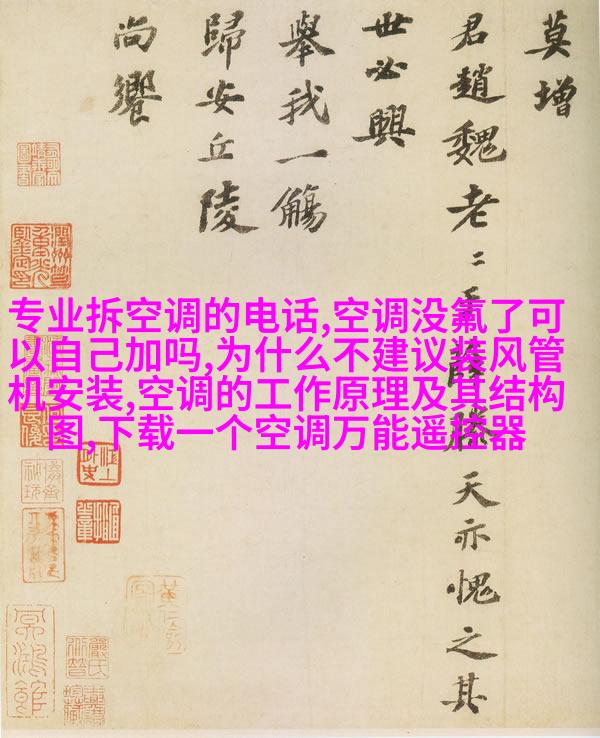 莫增
君趙魏老〻滕天亦愧之其
世必興
舉我一觴
歸安丘陵
尚饗
专业拆空调的电话,空调没氟了可
以自己加吗,为什么不建议装风管
机安装,空调的工作原理及其结构
图,下载一个空调万能遥控器